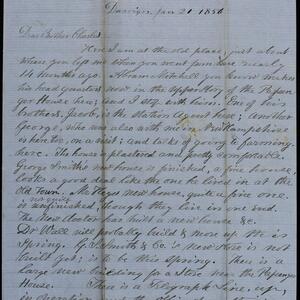 Jan 21 1856
Dear Brother Charles.
Here I am at the old place, just about
where you left me when you went
14 months ago. Abram Mitchell you know makes
his head quarters now in the of the
House here; and I stop with him. One of his
brothers, Jacob, is the Station Agent here; another
George, who was also with me in New Hampshire
is here too, on a visit, and talks of going to farming
here. The house is plastered and pretty comfortable.
George Smith's new house is finished, a fine house,
looks a good deal like the one he lived in at the
Old Town. new house, quite a fine one.
is not quite
finished, though they live in one end.
The New Doctor has built a new house &c.
Dr Will will probably build & move up
Spring. G. Smith & Co's new Store is not
built yet; is to be this spring. There is a
large new building for a Store near the
House. There is a Telegraph Line up,
in operation